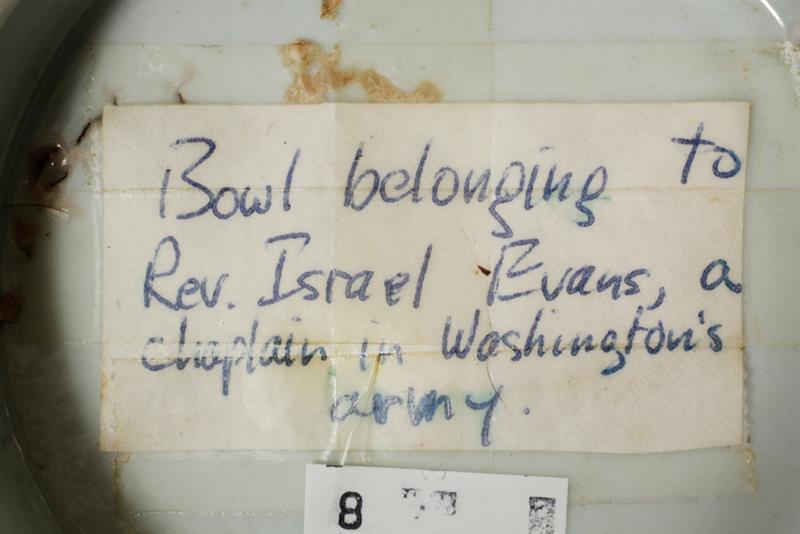 Bowl belonging to
Rev. Israel Evans, a
chaplain in Washington's
army.
8